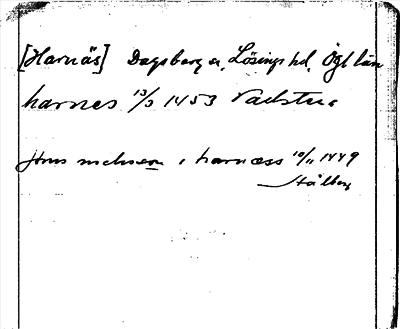 [Harnäs] Dagsberg sn, Lösings hd, Ögl län
harnes 13/3 1453 Vadstena
Jens nielsson i harnæss 10/11 1449
Stålberg